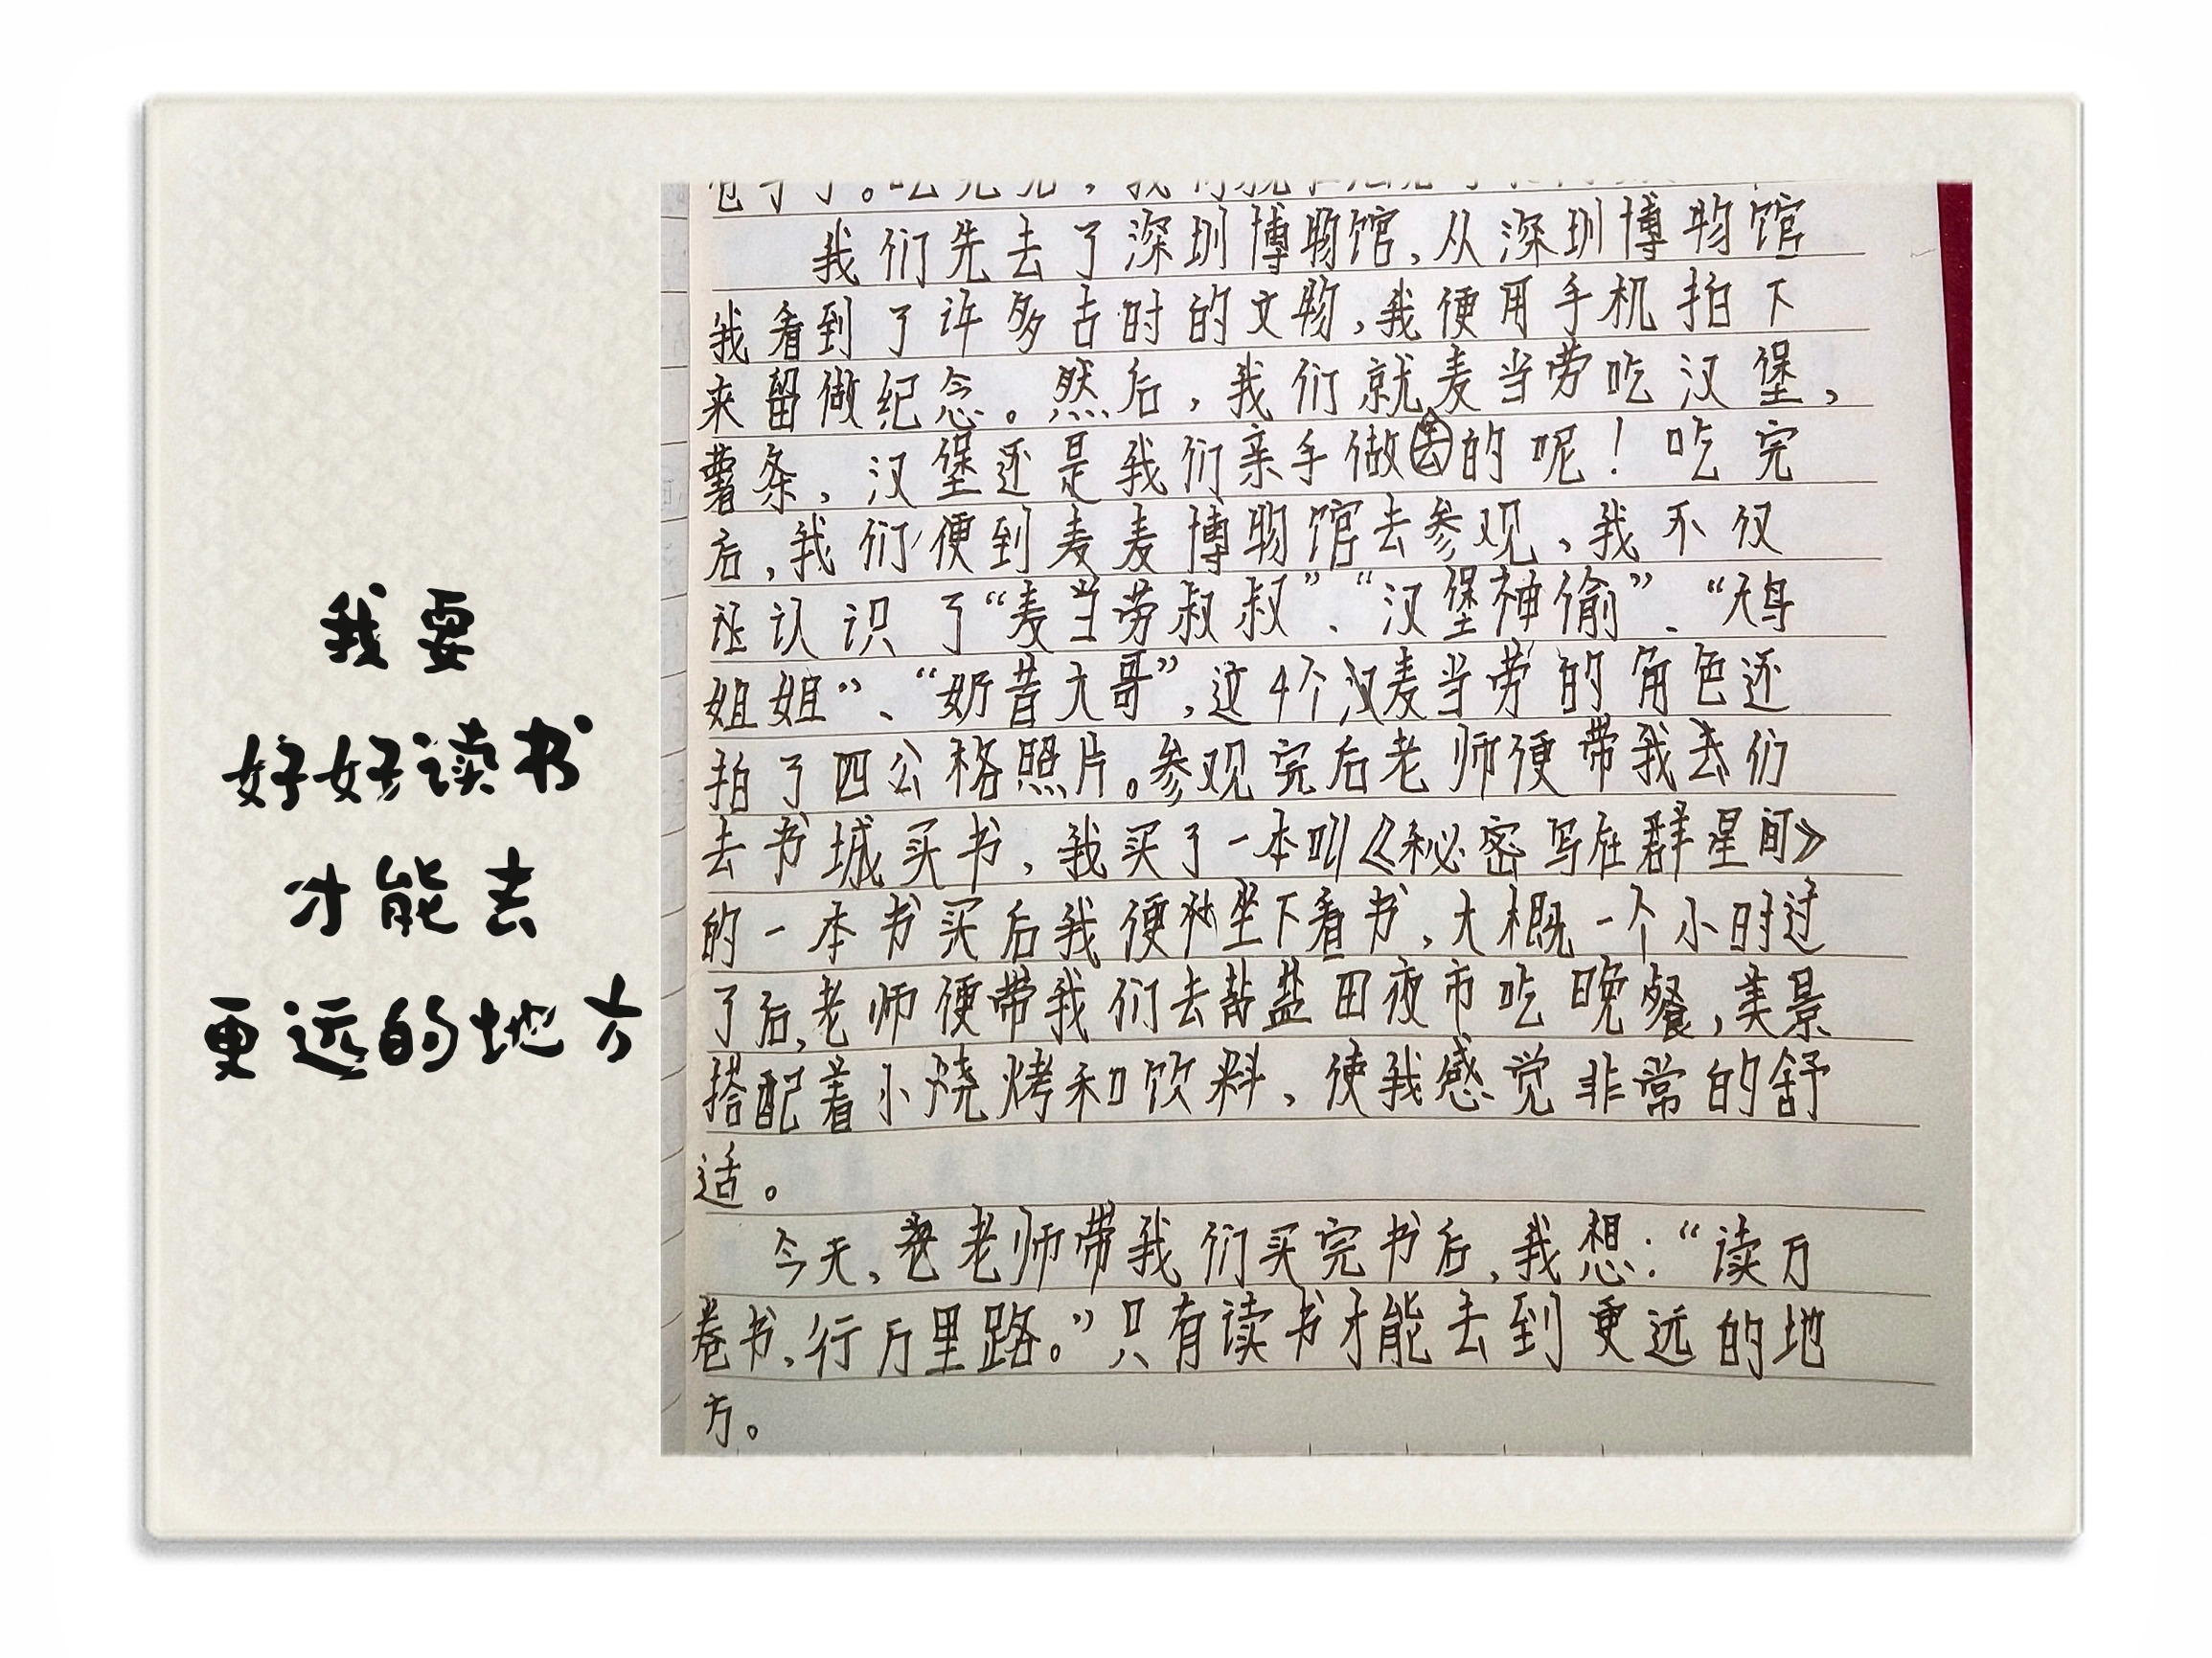 我要
好好读书
才能去
更远的地方
我们先去了深圳博物馆,从深圳博物馆
我看到了许多古时的文物,我便用手机拍下
来留做纪念。然后,我们就去麦当劳吃汉堡,
薯条,汉堡还是我们亲手做的呢!吃完
后,我们便到麦麦博物馆去参观,我不仅
还认识了“麦当劳叔叔”、“汉堡神偷”、“大鸟
姐姐”、“奶昔大哥”,这4个麦当劳的角色还
拍了四公格照片。参观完后老师便带我们
去书城买书,我买了一本叫《秘密写在群星间》
的一本书买后我便坐下看书,大概一个小时过
了后,老师便带我们去盐田夜市吃晚餐,美景
搭配着小烧烤和饮料,使我感觉非常的舒
适。
今天,老师带我们买完书后,我想:“读万
卷书,行万里路。”只有读书才能去到更远的地
方。